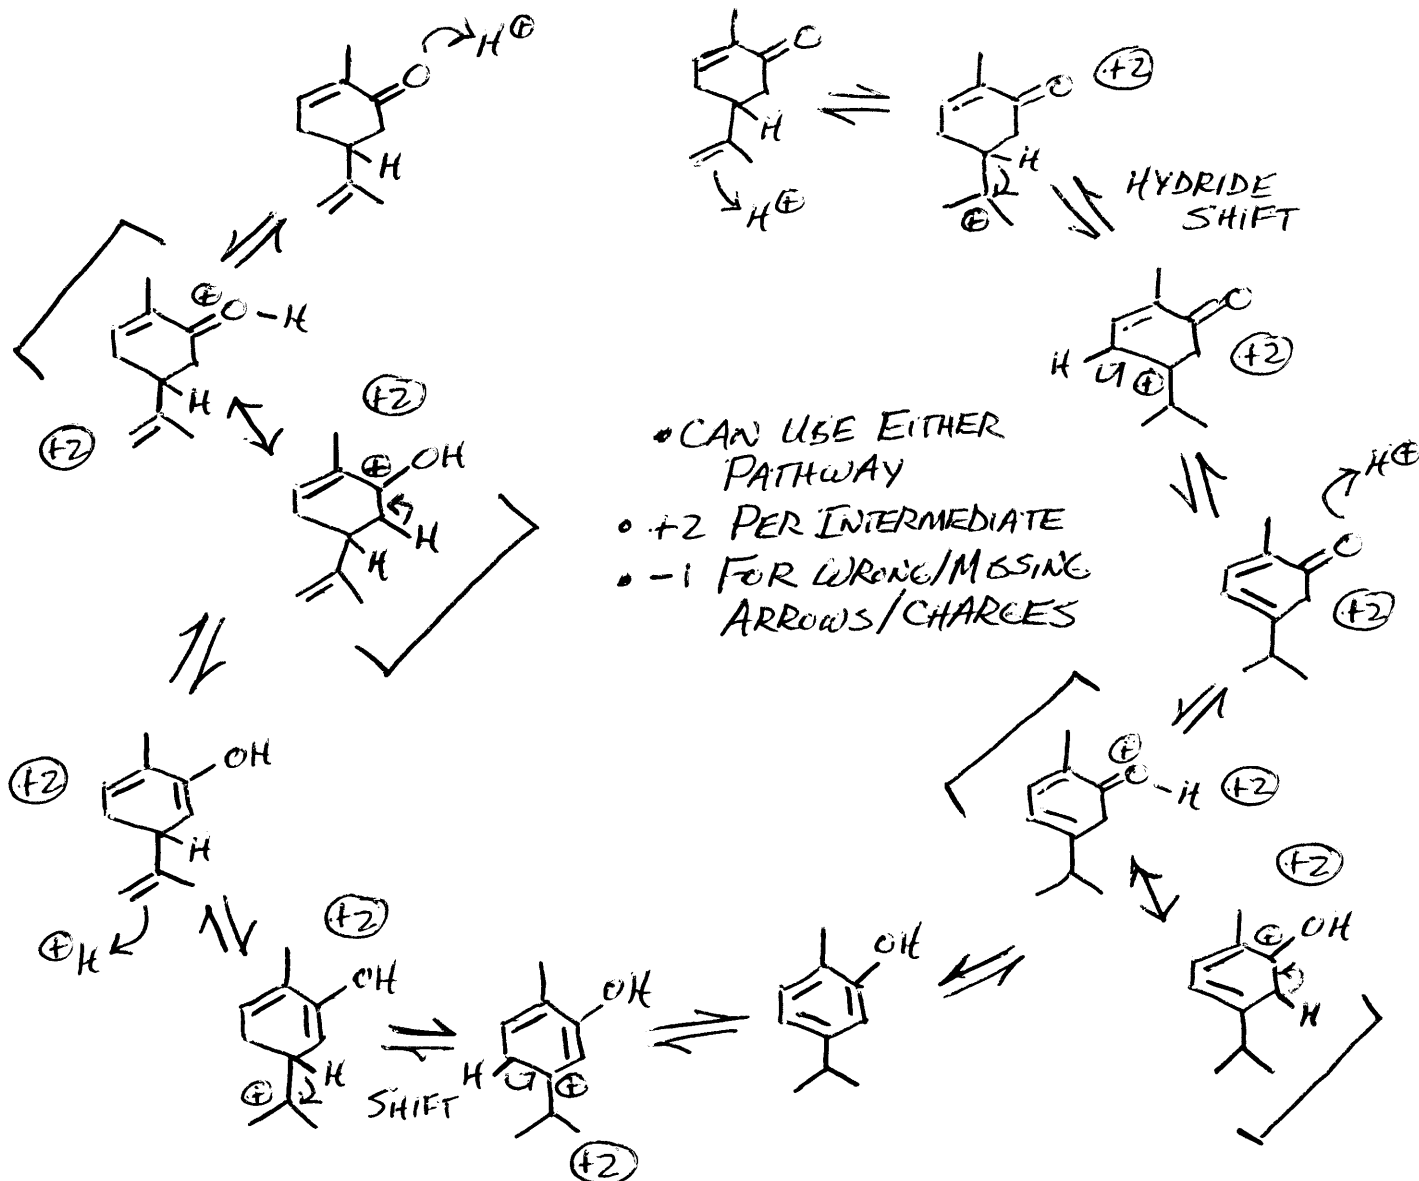 O H⊕
H
O
H
H⊕
O
H
⊕
+2
HYDRIDE
SHIFT
⊕
O-H
H
+2
+2
⊕
OH
H
H
O
H
⊕
+2
• CAN USE EITHER
PATHWAY
• +2 PER INTERMEDIATE
• -1 FOR WRONG/MISSING
ARROWS/CHARGES
H⊕
O
+2
+2
OH
H
⊕H
⊕
O-H
+2
+2
⊕
OH
H
+2
OH
H
⊕
SHIFT
OH
H
⊕
+2
OH